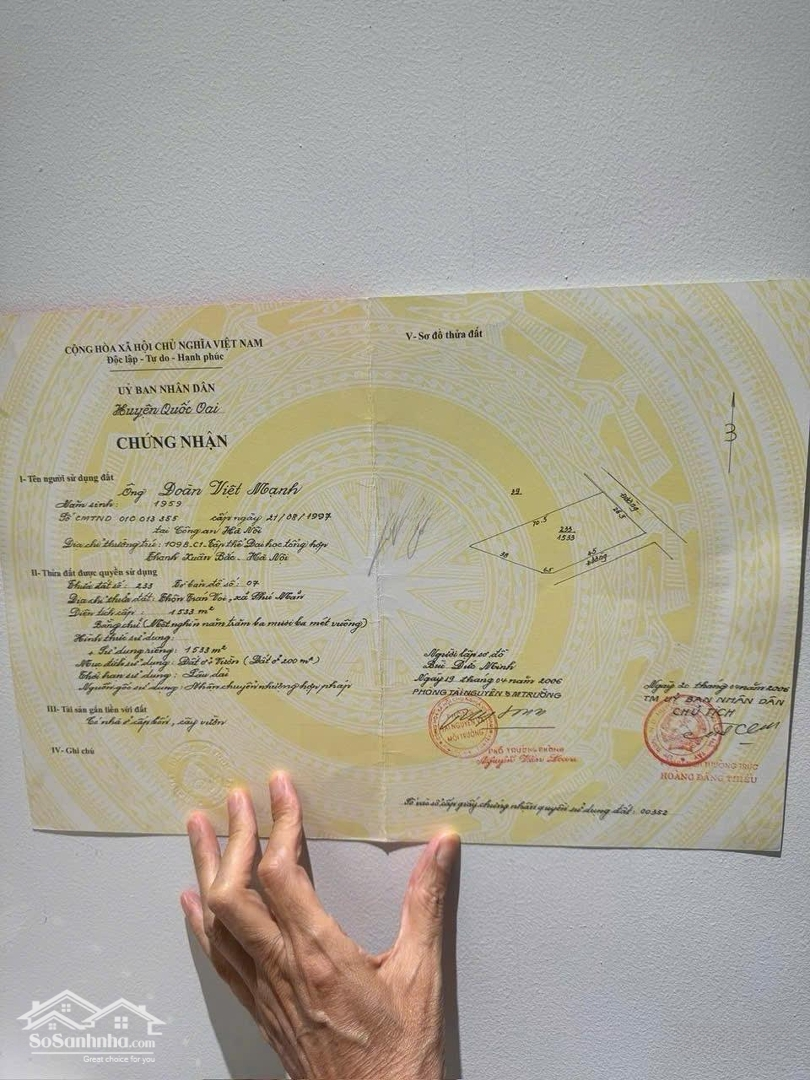 CỘNG HÒA XÃ HỘI CHỦ NGHĨA VIỆT NAM
Độc lập - Tự do - Hạnh phúc
UỶ BAN NHÂN DÂN
Huyện Quốc Oai
CHỨNG NHẬN
I- Tên người sử dụng đất
Ông Đoàn Việt Mạnh
Năm sinh: 1959
Số CMTND 010 013 355 cấp ngày 21/08/1997
tại Công an Hà Nội
Địa chỉ thường trú: 109B.C1. Tập thể Đại học tổng hợp
Thanh Xuân Bắc. Hà Nội
II- Thửa đất được quyền sử dụng
Thửa đất số: 233 Tờ bản đồ số: 07
Địa chỉ thửa đất: Thôn Trán Voi, xã Phú Mãn
Diện tích cấp: 1533 m²
Bằng chữ (Một nghìn năm trăm ba mươi ba mét vuông)
Hình thức sử dụng:
+ Sử dụng riêng: 1533 m²
Mục đích sử dụng: Đất ở + Vườn (Đất ở 200 m²)
Thời hạn sử dụng: Lâu dài
Nguồn gốc sử dụng: Nhận chuyển nhượng hợp pháp
III- Tài sản gắn liền với đất
Có nhà ở cấp bốn, cây vườn
IV- Ghi chú
V- Sơ đồ thửa đất
B
Đường
26.3
70.5
233
1533
38
6.5
45
Đường
Người lập sơ đồ
Bùi Đức Minh
Ngày 19 tháng 04 năm 2006
PHÒNG TÀI NGUYÊN & M.TRƯỜNG
TÀI NGUYÊN
MÔI TRƯỜNG
PHÓ TRƯỞNG PHÒNG
Nguyễn Văn
Ngày 20 tháng 04 năm 2006
TM UỶ BAN NHÂN DÂN
CHỦ TỊCH
THƯỜNG TRỰC
HOÀNG ĐĂNG THIỀU
Số vào sổ cấp giấy chứng nhận quyền sử dụng đất: 00352
SoSanhnha.com
Great choice for you